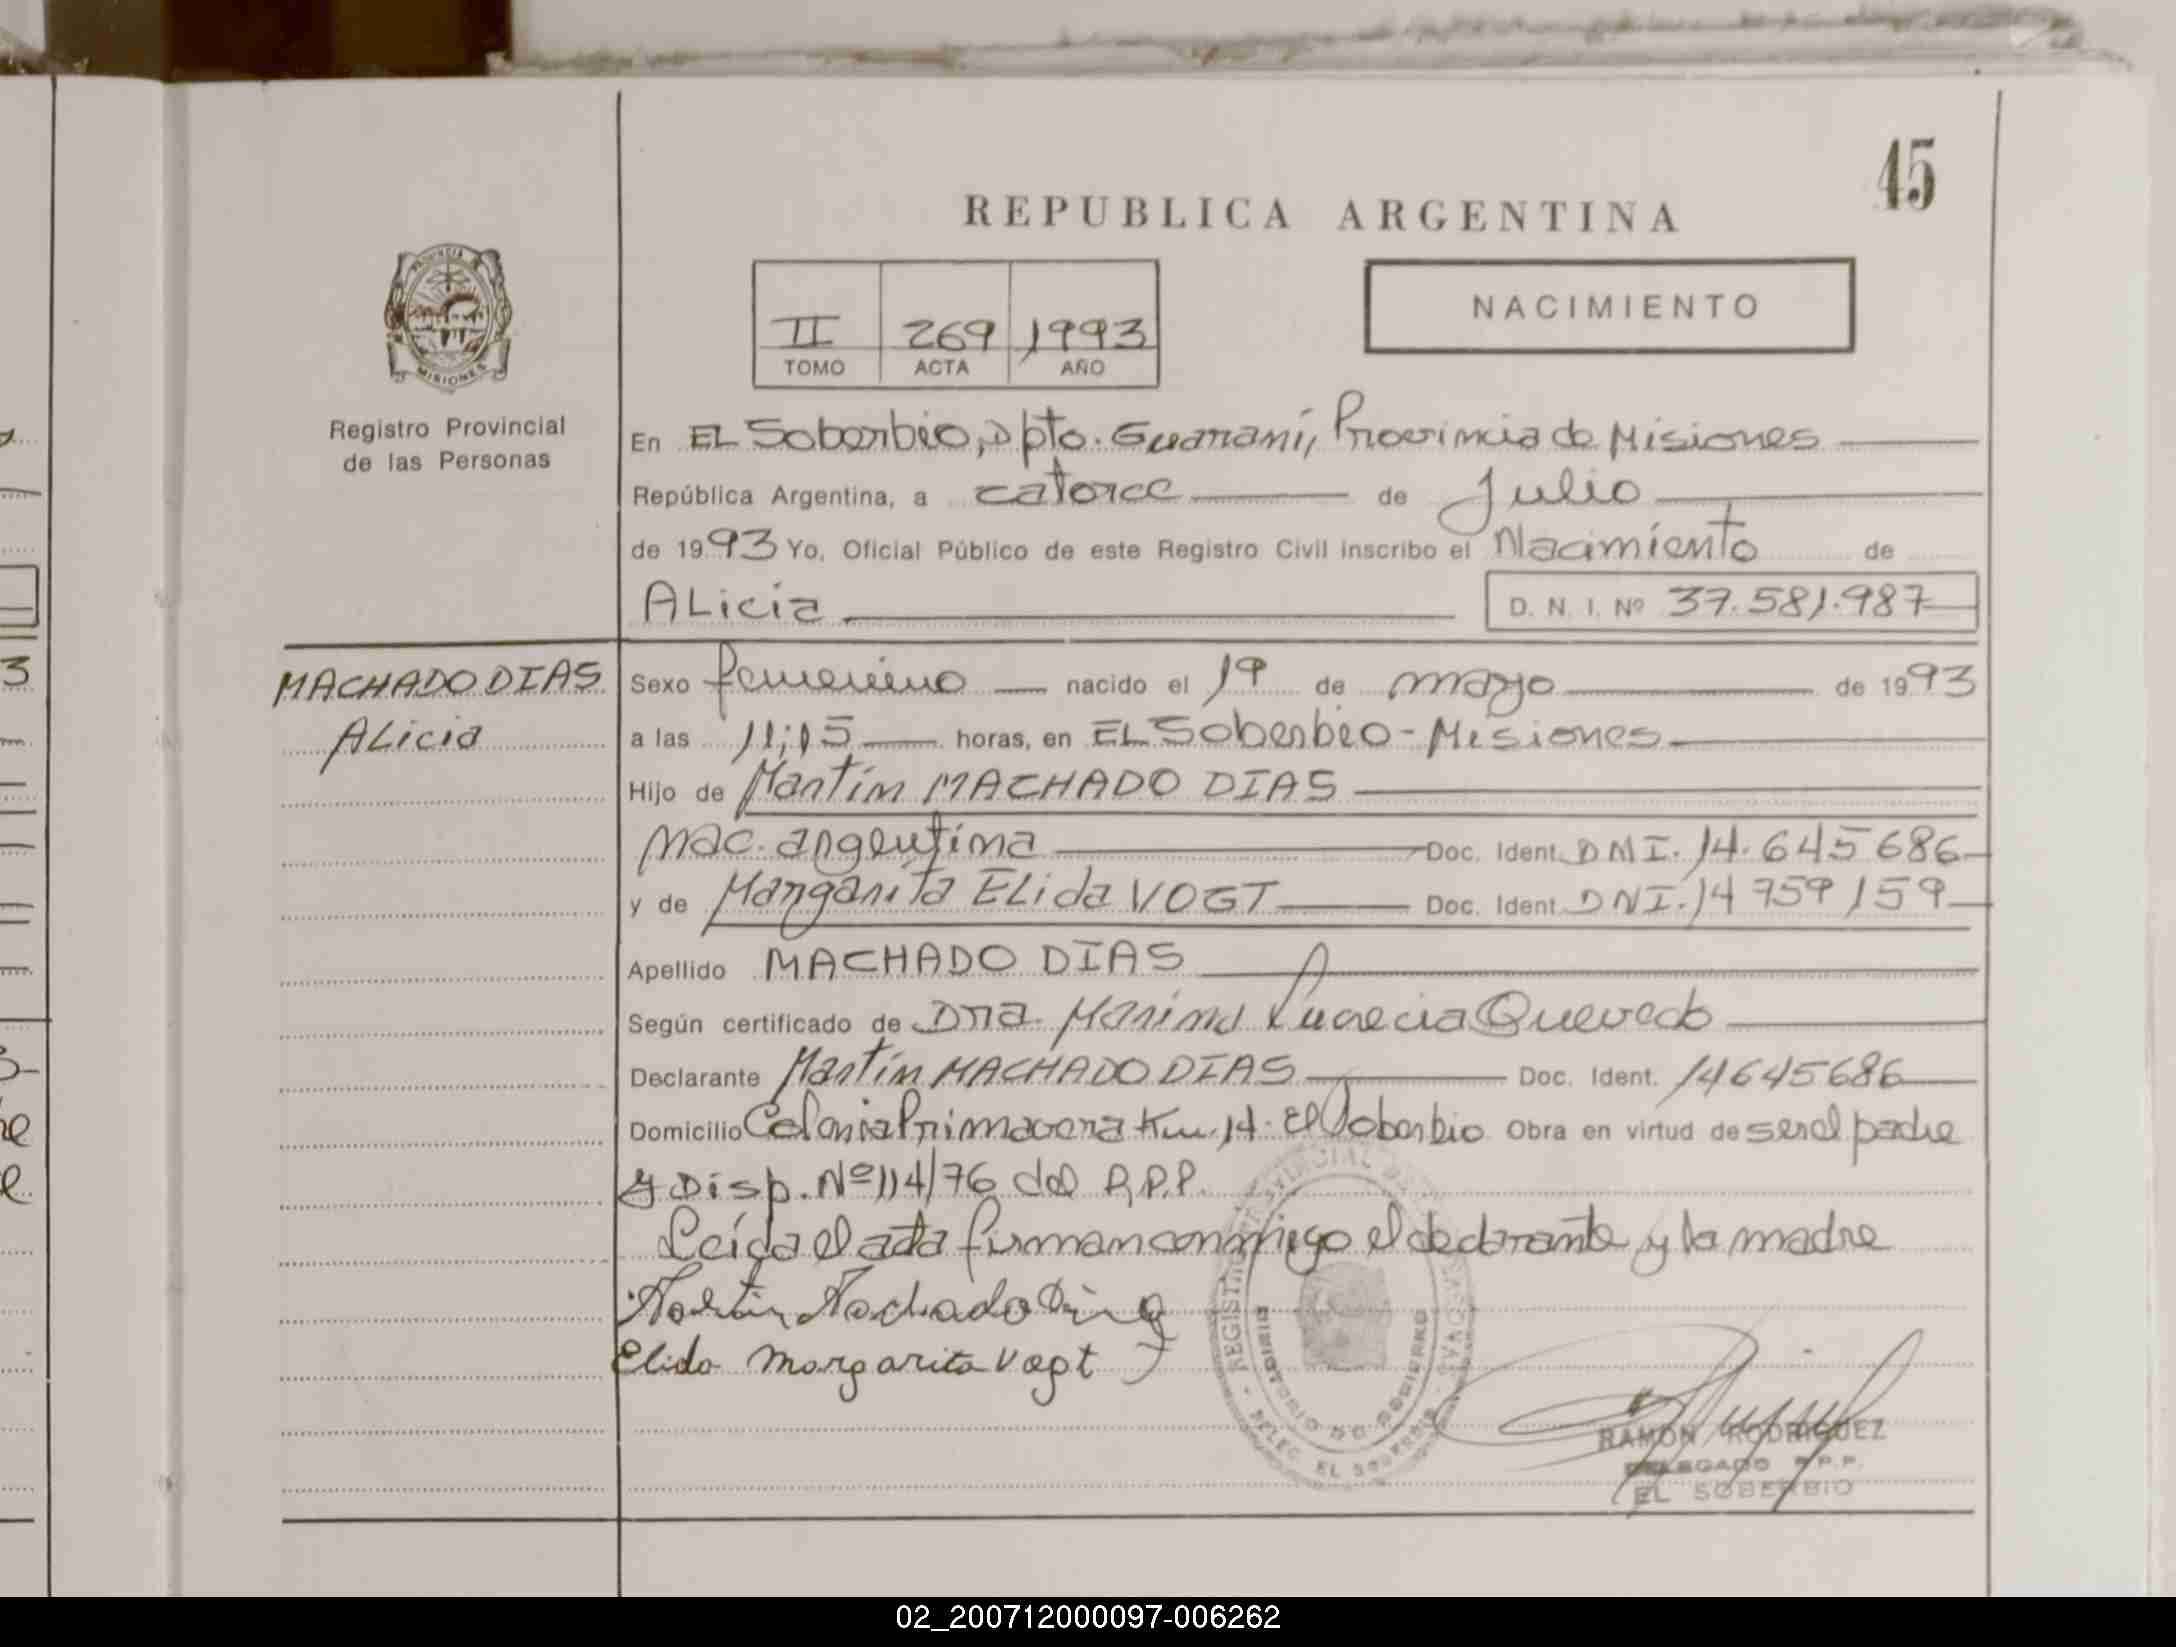 45
REPUBLICA ARGENTINA
PROVINCIA DE
MISIONES
Registro Provincial
de las Personas
II 269 1993
TOMO ACTA AÑO
NACIMIENTO
En EL Soberbio, Dpto. Guaraní, Provincia de Misiones
República Argentina, a catorce de Julio
de 1993 Yo, Oficial Público de este Registro Civil inscribo el Nacimiento de
ALicia D. N. I. Nº 37.581.987
MACHADO DIAS
ALicia
Sexo femenino nacido el 19 de mayo de 1993
a las 11;15 horas, en EL Soberbio - Misiones
Hijo de Martín MACHADO DIAS
Nac. argentina Doc. Ident. DNI. 14.645686
y de Margarita ELida VOGT Doc. Ident. DNI. 14 759 159
Apellido MACHADO DIAS
Según certificado de Dra. Marina Lucrecia Quevedo
Declarante Martín MACHADO DIAS Doc. Ident. 14645686
Domicilio Colonia Primavera Km. 14. El Soberbio Obra en virtud de ser el padre
y Disp. Nº 114/76 del R.P.P.
Leída el acta firman conmigo el declarante y la madre
Martin Machado Dias
Elida Margarita Vogt
DELEG. EL SOBERBIO
RAMON RODRIGUEZ
DELEGADO R.P.P.
EL SOBERBIO
3
02_200712000097-006262